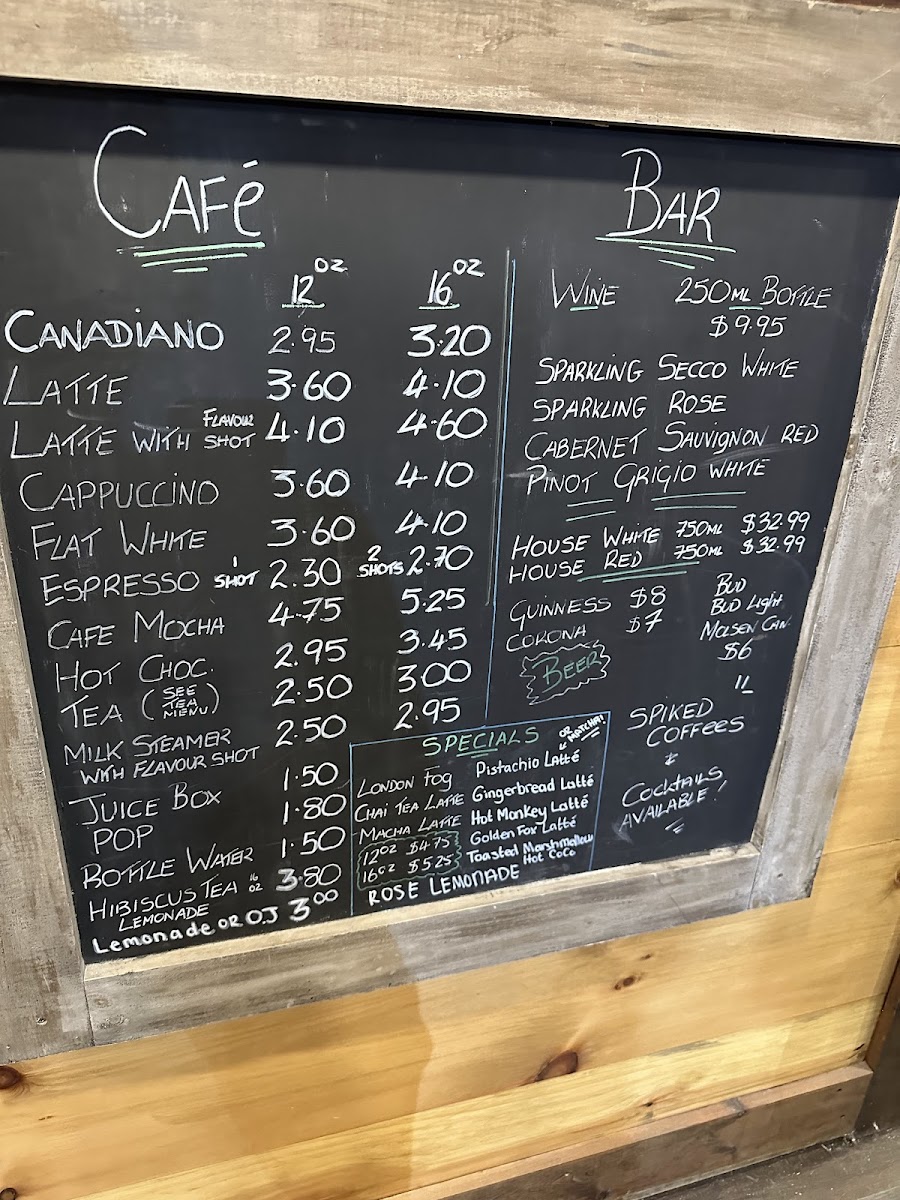 CAFÉ
12 OZ 16 OZ
CANADIANO 2.95 3.20
LATTE 3.60 4.10
LATTE WITH FLAVOUR SHOT 4.10 4.60
CAPPUCCINO 3.60 4.10
FLAT WHITE 3.60 4.10
ESPRESSO 1 SHOT 2.30 2 SHOTS 2.70
CAFE MOCHA 4.75 5.25
HOT CHOC. 2.95 3.45
TEA (SEE TEA MENU) 2.50 3.00
MILK STEAMER WITH FLAVOUR SHOT 2.50 2.95
JUICE BOX 1.50
POP 1.80
BOTTLE WATER 1.50
HIBISCUS TEA 16 OZ 3.80
LEMONADE
Lemonade OR O.J 3.00
SPECIALS
LONDON FOG
CHAI TEA LATTE
MACHA LATTE
12OZ $4.75
16OZ $5.25
ROSE LEMONADE
OR MATCHA!
Pistachio Latté
Gingerbread Latté
Hot Monkey Latté
Golden Fox Latté
Toasted Marshmellow
Hot CoCo
BAR
WINE 250ML BOTTLE
$9.95
SPARKLING SECCO WHITE
SPARKLING ROSE
CABERNET SAUVIGNON RED
PINOT GRIGIO WHITE
HOUSE WHITE 750ML $32.99
HOUSE RED 750ML $32.99
GUINNESS $8
CORONA $7
BEER
BUD
BUD Light
MOLSEN CAN.
$6
SPIKED
COFFEES
&
COCKTAILS
AVAILABLE!